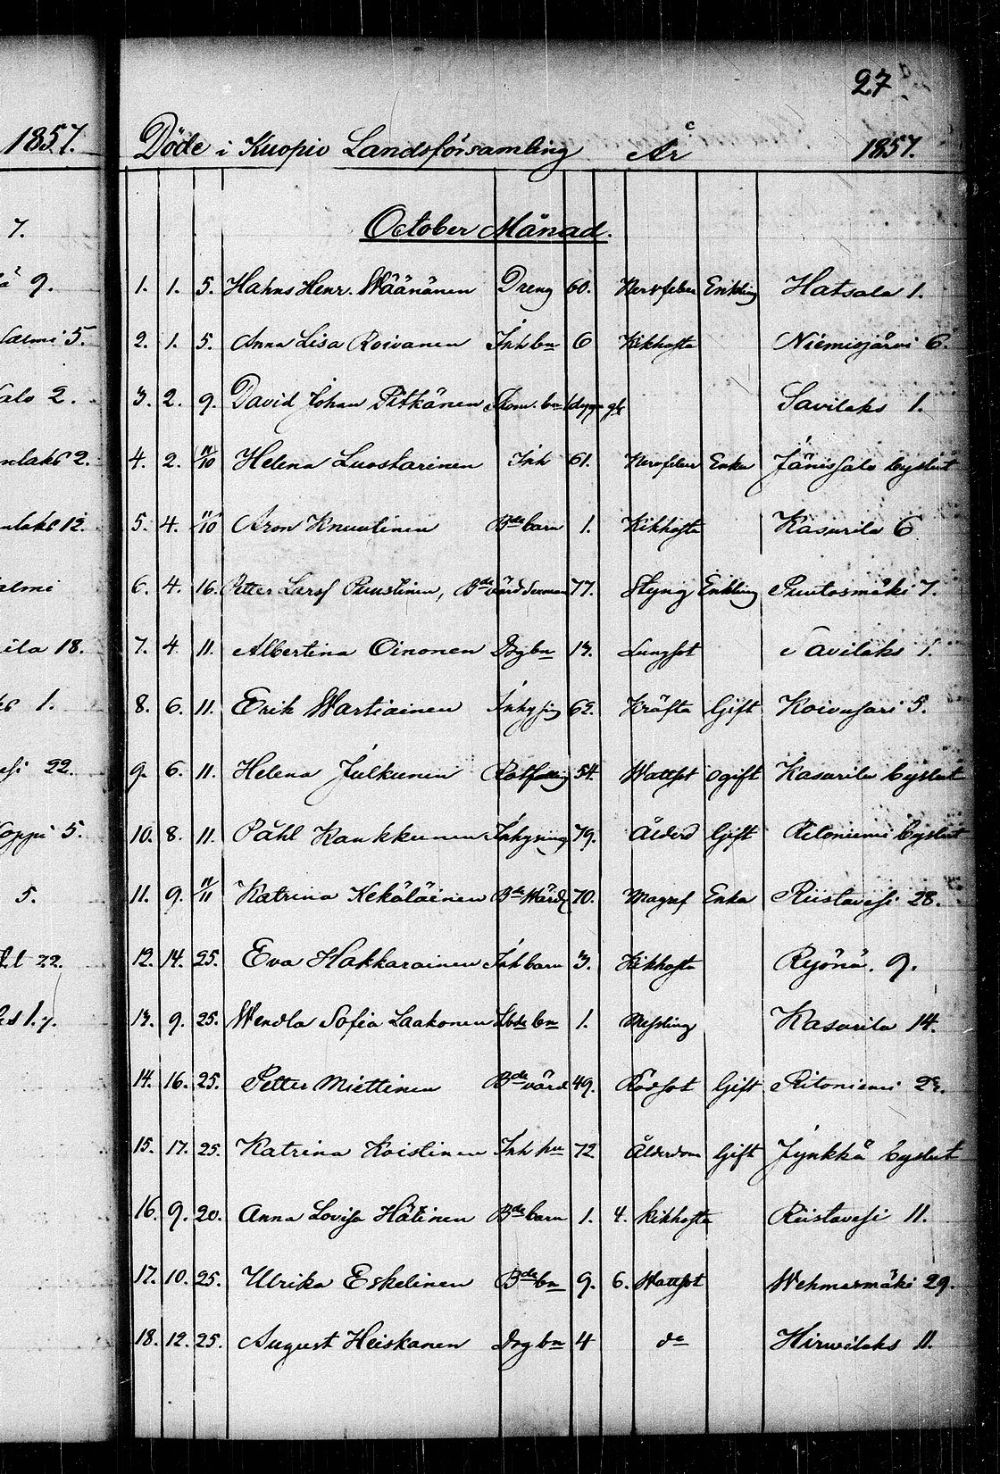 1857.
7.
9.
5.
2.
2.
12.
18.
1.
22.
5.
5.
22.
27
Döde i Kuopio Landsförsamling År 1857.
October Månad.
1. 1. 5. Hahns Henr. Wäänänen Dreng 60. Nervfeber Enkling Hatsala 1.
2. 1. 5. Anna Lisa Roivanen Inh bn 6 Kikhosta Niemisjärvi 6.
3. 2. 9. David Johan Pitkänen bn Savilaks 1.
4. 2. 11/10 Helena Luostarinen Inh 61. Nervfeber Enka Jänissalo byslut
5. 4. 11/10 Aron Knuutinen Bde barn 1. Kikhosta Kasurila 6
6. 4. 16. Petter Larss Puustinen, Bde 77. Styng Enkling Puutosmäki 7.
7. 4. 11. Albertina Oinonen Drg bn 13. Lungsot Savilaks 1.
8. 6. 11. Erik Wartiainen Inhysing 62. Kräfta Gift Koivusari 5.
9. 6. 11. Helena Julkunen Rotfattig 54. Wattsot ogift Kasurila byslut
10. 8. 11. Påhl Kaukkunen Inhysing 79. Ålderd Gift Ritoniemi byslut
11. 9. 11/11 Katrina Kekäläinen Bde Wärd 70. Magref Enka Riistavesi 28.
12. 14. 25. Eva Hakkarainen Inh barn 3. Kikhosta Ryönä. 9.
13. 9. 25. Wendla Sofia Laakonen bn 1. Messling Kasurila 14.
14. 16. 25. Petter Miettinen Bde värd 49. Rödsot Gift Ritoniemi
15. 17. 25. Katrina Koistinen Inh hu 72 Ålderdom Gift Jynkkä byslut
16. 9. 20. Anna Lovisa Hätinen Bde barn 1. 4. kikhosta Riistavesi 11.
17. 10. 25. Ulrika Eskelinen Bde bn 9. 6. Wattsot Wehmasmäki 29.
18. 12. 25. August Heiskanen Drg bn 4 do Hirvilaks 11.